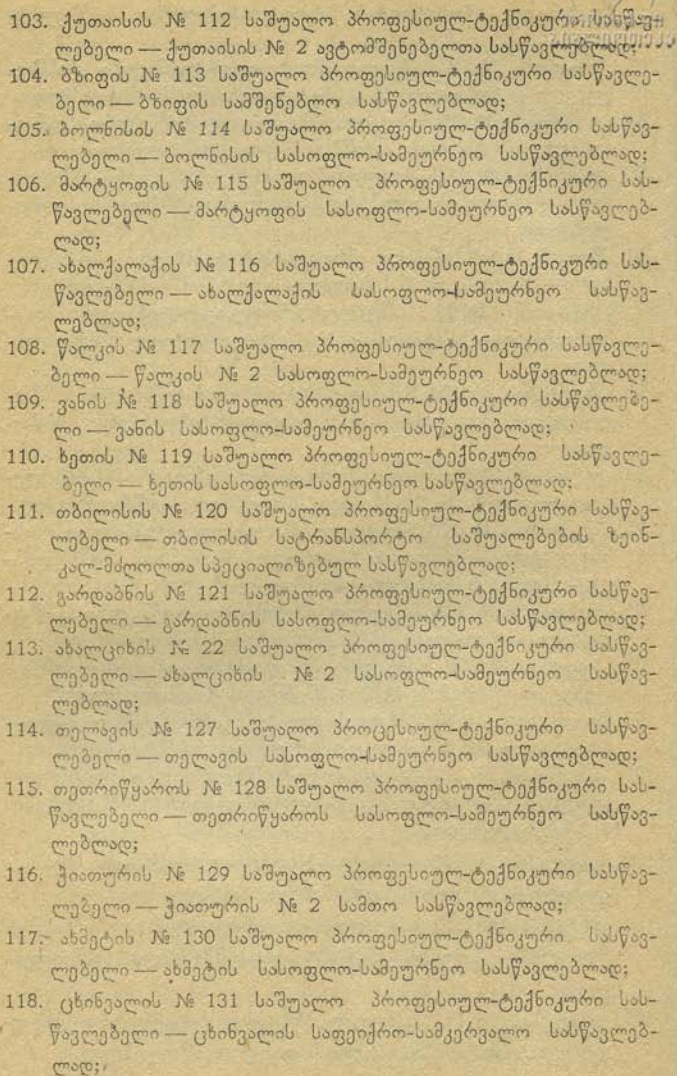 103. ქუთაისის № 112 საშუალო პროფესიულ-ტექნიკური სასწავ-
ლებელი — ქუთაისის № 2 ავტომშენებელთა სასწავლებლად;
104. ბზიფის № 113 საშუალო პროფესიულ-ტექნიკური სასწავლე-
ბელი — ბზიფის სამშენებლო სასწავლებლად;
105. ბოლნისის № 114 საშუალო პროფესიულ-ტექნიკური სასწავ-
ლებელი — ბოლნისის სასოფლო-სამეურნეო სასწავლებლად;
106. მარტყოფის № 115 საშუალო პროფესიულ-ტექნიკური სას-
წავლებელი — მარტყოფის სასოფლო-სამეურნეო სასწავლებ-
ლად;
107. ახალქალაქის № 116 საშუალო პროფესიულ-ტექნიკური სას-
წავლებელი — ახალქალაქის სასოფლო-სამეურნეო სასწავ-
ლებლად;
108. წალკის № 117 საშუალო პროფესიულ-ტექნიკური სასწავლე-
ბელი — წალკის № 2 სასოფლო-სამეურნეო სასწავლებლად;
109. ვანის № 118 საშუალო პროფესიულ-ტექნიკური სასწავლებე-
ლი — ვანის სასოფლო-სამეურნეო სასწავლებლად;
110. ხეთის № 119 საშუალო პროფესიულ-ტექნიკური სასწავლე-
ბელი — ხეთის სასოფლო-სამეურნეო სასწავლებლად;
111. თბილისის № 120 საშუალო პროფესიულ-ტექნიკური სასწავ-
ლებელი — თბილისის სატრანსპორტო საშუალებების ზეინ-
კალ-მძღოლთა სპეციალიზებულ სასწავლებლად;
112. გარდაბნის № 121 საშუალო პროფესიულ-ტექნიკური სასწავ-
ლებელი — გარდაბნის სასოფლო-სამეურნეო სასწავლებლად;
113. ახალციხის № 22 საშუალო პროფესიულ-ტექნიკური სასწავ-
ლებელი — ახალციხის № 2 სასოფლო-სამეურნეო სასწავ-
ლებლად;
114. თელავის № 127 საშუალო პროცესიულ-ტექნიკური სასწავ-
ლებელი — თელავის სასოფლო-სამეურნეო სასწავლებლად;
115. თეთრიწყაროს № 128 საშუალო პროფესიულ-ტექნიკური სას-
წავლებელი — თეთრიწყაროს სასოფლო-სამეურნეო სასწავ-
ლებლად;
116. ჭიათურის № 129 საშუალო პროფესიულ-ტექნიკური სასწავ-
ლებელი — ჭიათურის № 2 სამთო სასწავლებლად;
117. ახმეტის № 130 საშუალო პროფესიულ-ტექნიკური სასწავ-
ლებელი — ახმეტის სასოფლო-სამეურნეო სასწავლებლად;
118. ცხინვალის № 131 საშუალო პროფესიულ-ტექნიკური სას-
წავლებელი — ცხინვალის საფეიქრო-სამკერვალო სასწავლებ-
ლად;